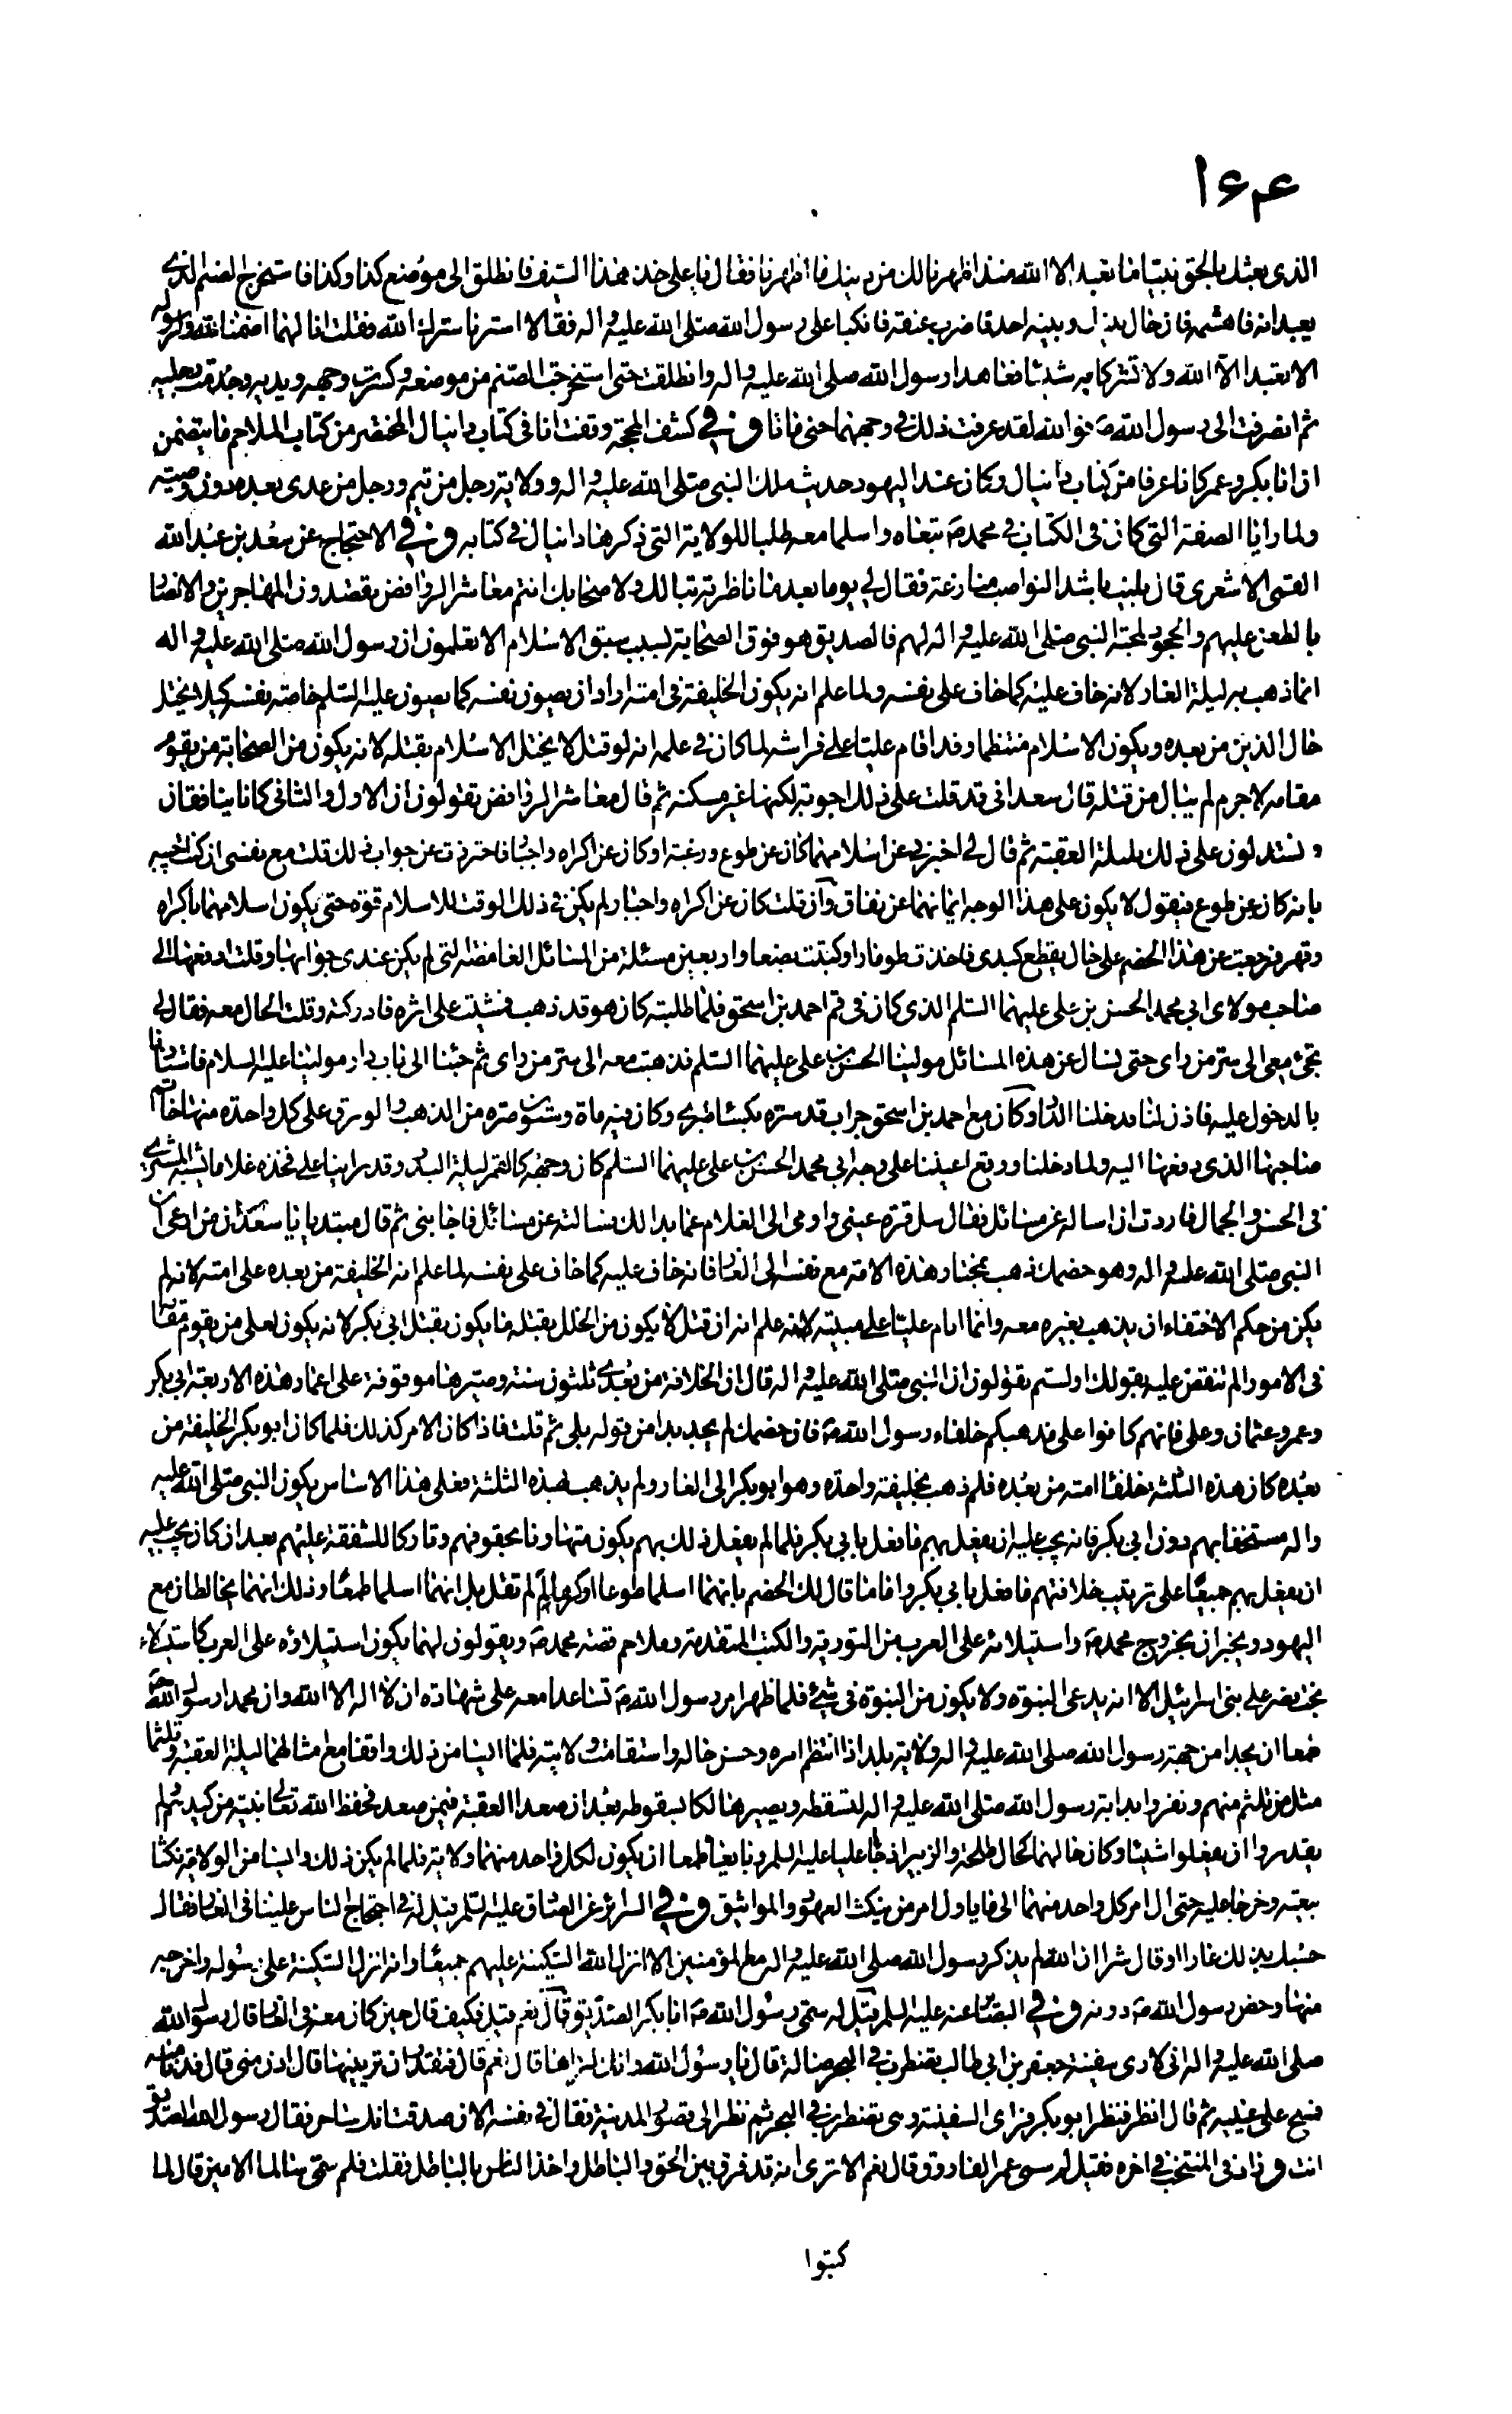 ١۶۴
الذى بعثك بالحق نبيا ما نعبد الا الله منذ اظهرنا لك من دينك ما اظهرنا فقال يا على خذ هذا السيف فانطلق الى موضع كذا وكذا فاستخرج الصنم الذى
يعبدانه فاهشمه فان حال بينك وبينه احد فاضرب عنقه فانكبا على رسول الله صلى الله عليه واله فقالا استرنا سترك الله فقلت انا لهما اضمنا لله ولرسوله
الا نعبد الا الله ولا تشركا به شيئا فعاهدا رسول الله صلى الله عليه واله وانطلقت حتى استخرجت الصنم من موضعه وكسرت وجهه ويديه وجذمت رجليه
ثم انصرفت الى رسول الله ص فوالله لقد عرفت ذلك فى وجههما حتى ماتا وفى كشف المحجة وقفت انا فى كتاب دانيال المختصر من كتاب الملاحم ما يتضمن
ان ابا بكر وعمر كانا عرفا من كتاب دانيال وكان عند اليهود حديث ملك النبى صلى الله عليه واله وولاية رجل من تيم ورجل من عدى بعده دون وصيه
ولما رايا الصفة التى كان فى الكتاب فى محمد ص تبعاه واسلما معه طلبا للولاية التى ذكرها دانيال فى كتابه وفى الاحتجاج عن سعد بن عبد الله
القمى الاشعرى قال بليت باشد النواصب منازعة فقال لى يوما بعد ما ناظرته تبا لك ولاصحابك انتم معاشر الروافض تقصدون المهاجرين والانصار
بالطعن عليهم والجحود لمحبة النبى صلى الله عليه واله لهم فالصديق هو فوق الصحابة بسبب سبق الاسلام الا تعلمون ان رسول الله صلى الله عليه واله
انما ذهب به ليلة الغار لانه خاف عليه كما خاف على نفسه ولما علم انه يكون الخليفة فى امته اراد ان يصون نفسه كما يصون عليه السلم خاصة نفسه كيلا يختل
حال الدين من بعده ويكون الاسلام منتظما وقد اقام عليا على فراشه لما كان فى علمه انه لو قتل لا يختل الاسلام بقتله لانه يكون من الصحابة من يقوم
مقامه لا جرم لم يبال من قتله قال سعد انى قد قلت على ذلك اجوبة لكنها غير مسكتة ثم قال معاشر الروافض تقولون ان الاول والثانى كانا ينافقان
وتستدلون على ذلك بليلة العقبة ثم قال لى اخبرنى عن اسلامهما كان عن طوع ورغبة او كان عن اكراه واجبار فاحترزت عن جواب ذلك وقلت مع نفسى ان كنت اجيبه
بانه كان عن طوع فيقول لا يكون على هذا الوجه ايمانهما عن نفاق وان قلت كان عن اكراه واجبار لم يكن فى ذلك الوقت للاسلام قوة حتى يكون اسلامهما باكراه
وقهر فرجعت عن هذا الخصم على حال يقطع كبدى فاخذت طومارا وكتبت بضعا واربعين مسئلة من المسائل الغامضة التى لم يكن عندى جوابها وقلت ادفعها الى
صاحب مولاى ابى محمد الحسن بن على عليهما السلم الذى كان فى قم احمد بن اسحق فلما طلبته كان هو قد ذهب فمشيت على اثره فادركته وقلت الحال معه فقال لى
تجئ معى الى سر من راى حتى نسال عن هذه المسائل مولينا الحسن بن على عليهما السلم فذهبت معه الى سر من راى ثم جئنا الى باب دار مولينا عليه السلام فاستاذنا
بالدخول عليه فاذن لنا فدخلنا الدار وكان مع احمد بن اسحق جراب قد ستره بكساء طبرى وكان فيه ماة وستون صرة من الذهب والورق على كل واحدة منها خاتم
صاحبها الذى دفعها اليه ولما دخلنا ووقع اعيننا على وجه ابى محمد الحسن بن على عليهما السلم كان وجهه كالقمر ليلة البدر وقد راينا على فخذه غلاما يشبه المشترى
فى الحسن والجمال فاردت ان اساله عن مسائل فقال سل قرة عينى واومى الى الغلام عما بدا لك فسالته عن مسائل فاجابنى ثم قال مبتديا يا سعد ان من ادعى ان
النبى صلى الله عليه واله وهو خصمك ذهب بمختار هذه الامة مع نفسه الى الغار فانه خاف عليه كما خاف على نفسه لما علم انه الخليفة من بعده على امته لانه لم
يكن من حكم الاختفاء ان يذهب بغيره معه وانما انام عليا على مبيته لانه علم انه ان قتل لا يكون من الخلل بقتله ما يكون بقتل ابى بكر لانه يكون لعلى من يقوم مقامه
فى الامور الم تنقض عليه بقولك اولستم تقولون ان النبى صلى الله عليه واله قال ان الخلافة من بعدى ثلثون سنة وصيرها موقوفة على اعمار هذه الاربعة ابى بكر
وعمر وعثمان وعلى فانهم كانوا على مذهبكم خلفاء رسول الله ص فان خصمك لم يجد بدا من قوله بلى ثم قلت فاذا كان الامر كذلك فلما كان ابو بكر الخليفة من
بعده كان هذه الثلثة خلفاء امته من بعده فلم ذهب بخليفة واحدة وهو ابو بكر الى الغار ولم يذهب بهذه الثلثة فعلى هذا الاساس يكون النبى صلى الله عليه
واله مستخفا بهم دون ابى بكر فانه يجب عليه ان يفعل بهم ما فعل بابى بكر فلما لم يفعل ذلك بهم يكون متهاونا بحقوقهم وتاركا للشفقة عليهم بعد ان كان يجب عليه
ان يفعل بهم جميعا على ترتيب خلافتهم ما فعل بابى بكر واما ما قال لك الخصم بانهما اسلما طوعا او كرها لم لم تقل بل انهما اسلما طمعا وذلك انهما يخالطان مع
اليهود ويخبران بخروج محمد ص واستيلائه على العرب من التورية والكتب المتقدمة وملاحم قصة محمد ص ويقولون لهما يكون استيلاؤه على العرب كاستيلاء
بخت نصر على بنى اسرئيل الا انه يدعى النبوة ولا يكون من النبوة فى شئ فلما ظهر امر رسول الله ص تساعدا معه على شهادة ان لا اله الا الله وان محمدا رسول الله ص
طمعا ان يجدا من جهة رسول الله صلى الله عليه واله ولاية بلد اذا انتظم امره وحسن حاله واستقامت ولايته فلما ايسا من ذلك وافقا مع امثالهما ليلة العقبة وتلثما
مثل من تلثم منهم ونفروا بدابة رسول الله صلى الله عليه واله لتسقطه ويصير هالكا بسقوطه بعد ان صعدا العقبة فيمن صعد فحفظ الله تعالى نبيه من كيدهم ولم
يقدروا ان يفعلوا شيئا وكان حالهما كحال طلحة والزبير اذ جاءا عليا عليه السلم وبايعاه طمعا ان يكون لكل واحد منهما ولاية فلما لم يكن ذلك وايسا من الولاية نكثا
بيعته وخرجا عليه حتى ال امر كل واحد منهما الى ما يؤول امر من ينكث العهود والمواثيق وفى السرائر عن الصادق عليه السلم قيل له فى احتجاج الناس علينا فى الغار فقال
حسبك بذلك عارا او قال شرا ان الله لم يذكر رسول الله صلى الله عليه واله مع المؤمنين الا انزل الله السكينة عليهم جميعا وانه انزل السكينة على رسوله واخرجه
منها وخص رسول الله ص دونه وفى البصائر عنه عليه السلم قيل له سمى رسول الله ص ابا بكر الصديق قال نعم قيل فكيف قال حين كان معه فى الغار قال رسول الله
صلى الله عليه واله انى لارى سفينة جعفر بن ابى طالب تضطرب فى البحر ضالة قال يا رسول الله وانك لتراها قال نعم قال فتقدر ان ترينيها قال ادن منى قال فدنا منه
فمسح على عينيه ثم قال انظر فنظر ابو بكر فراى السفينة وهى تضطرب فى البحر ثم نظر الى قصور المدينة فقال فى نفسه الان صدقت انك ساحر فقال رسول الله الصديق
انت وزاد فى المنتخب فى اخره فقيل لم سمى عمر الفاروق قال نعم الا ترى انه قد فرق بين الحق والباطل واخذ الناس بالباطل فقلت فلم سمى سالما الامين قال لما
كتبوا